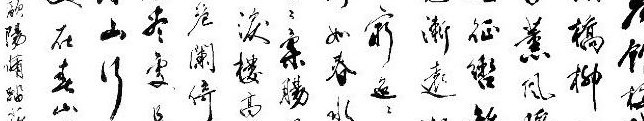 館梅
橋柳
薰風暖
征轡
漸遠
窮迢〻
如春水
〻柔腸
淚樓高
危闌倚
盡處是
山行
在春山
歐陽脩踏